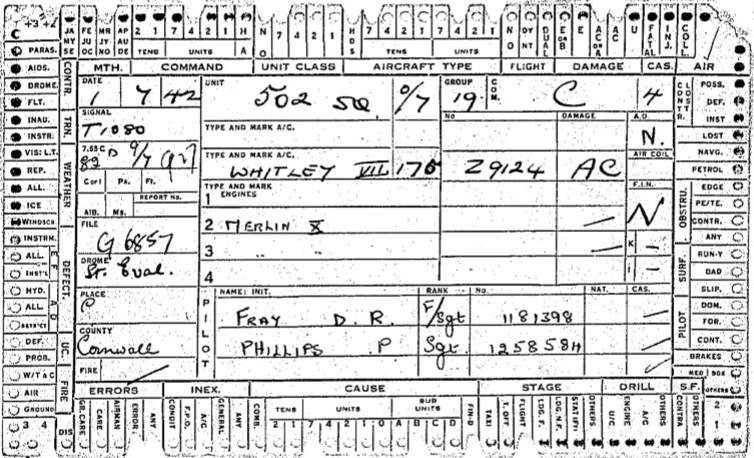 +3 +2
JA FE MR AP
MY JU JY AU
SE OC NO DE
4 2 1 7 4 2 1 H A
TENS UNITS
NO 7 4 2 1
HDS 7 4 2 1 7 4 2 1
TENS UNITS
NO DY NT DUAL E OR B E AC OR A AC U FATAL INJ. COLL
C
PARAS. CONTR. MTH. COMMAND UNIT CLASS AIRCRAFT TYPE FLIGHT DAMAGE CAS. AIR
AIDS.
DROME
FLT.
INAU.
INSTR.
VIS: L.T.
REP.
ALL.
ICE
WINDSCR.
INSTRM.
ALL.
INST'L
HYD.
ALL.
RETR'CT
DEF.
PROB.
W/T & C
AIR
GROUND
3 4
TRN.
WEATHER
DEFECT.
E F A D
UC.
FIRE
DIS
DATE
1 7 42
UNIT
502 SQ. 0/7
GROUP
19
COM.
C 4
SIGNAL
T1080
TYPE AND MARK A/C.
NO DAMAGE A.D.
N.
7,65 C
TYPE AND MARK A/C.
WHITLEY VII 176 Z9124 AC
AIR COLL
Corl PA. Fl.
REPORT No.
AIB. Ms.
TYPE AND MARK ENGINES
1
F.I.N.
N
2 MERLIN X —
FILE
G 6857
3 " " — K —
DROME
St. Eval.
4 I —
PLACE
C
COUNTY
Cornwall
FIRE
PILOT
NAME: INIT. RANK No. NAT. CAS.
FRAY D. R. F/Sgt 1181398 —
PHILLIPS P Sgt. 1258584 —
CONTR.
CONSTR.
POSS.
DEF.
INST
LOST
NAVG.
PETROL
OBSTRU.
EDGE
PE/TE.
CONTR.
ANY
SURF.
RUN-Y
DAD
SLIP.
PILOT
DOM.
FOR.
CONT.
BRAKES
MED BOX
OTHERS
2
1
ERRORS INEX. CAUSE STAGE DRILL S.F.
GR. CARE CARE AIRMAN ERROR ANY CONDIT F.P.O. A/C GENERAL ANY COMB.
TENS UNITS SUB UNITS
2 1 7 4 2 1 0 A B C D
FIN-D TAXI T. OFF FLIGHT LDG. F. LDG. N.F. STATION OTHERS U/C ENGINE A/C OTHERS CONTRA OTHERS